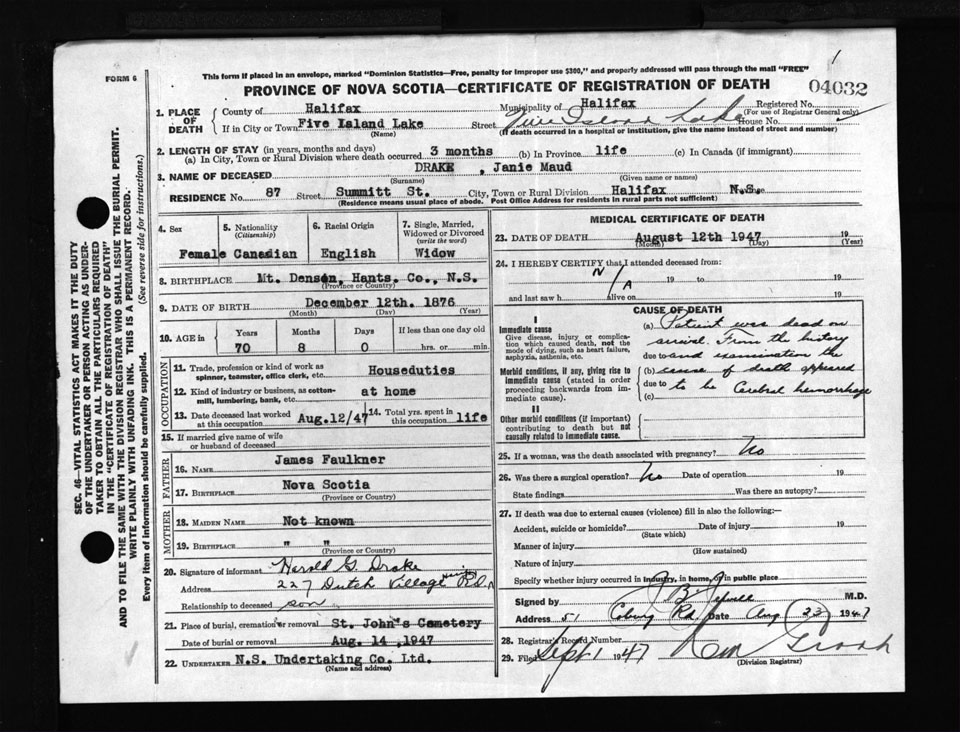 FORM 6
This form if placed in an envelope, marked "Dominion Statistics—Free, penalty for improper use $300," and properly addressed will pass through the mail "FREE"
1
PROVINCE OF NOVA SCOTIA—CERTIFICATE OF REGISTRATION OF DEATH
04032
1. PLACE OF DEATH
County of Halifax Municipality of Halifax Registered No.
(For use of Registrar General only)
If in City or Town Five Island Lake Street Five Island Lake House No.
(Name) (If death occurred in a hospital or institution, give the name instead of street and number)
2. LENGTH OF STAY (in years, months and days)
(a) In City, Town or Rural Division where death occurred 3 months (b) In Province life (c) In Canada (if immigrant)
3. NAME OF DECEASED DRAKE , Janie Maud
(Surname) (Given name or names)
RESIDENCE No. 87 Street Summitt St. City, Town or Rural Division Halifax N.S.
(Residence means usual place of abode. Post Office Address for residents in rural parts not sufficient)
4. Sex Female
5. Nationality (Citizenship) Canadian
6. Racial Origin English
7. Single, Married, Widowed or Divorced (write the word) Widow
8. BIRTHPLACE Mt. Denson, Hants. Co., N.S.
(Province or Country)
9. DATE OF BIRTH December 12th. 1876
(Month) (Day) (Year)
10. AGE in Years Months Days If less than one day old
70 8 0 hrs. or min.
OCCUPATION
11. Trade, profession or kind of work as spinner, teamster, office clerk, etc. Houseduties
12. Kind of industry or business, as cotton-mill, lumbering, bank, etc. at home
13. Date deceased last worked at this occupation Aug.12/47
14. Total yrs. spent in this occupation life
15. If married give name of wife or husband of deceased
FATHER
16. NAME James Faulkner
17. BIRTHPLACE Nova Scotia
(Province or Country)
MOTHER
18. MAIDEN NAME Not known
19. BIRTHPLACE " "
(Province or Country)
20. Signature of informant Harold G. Drake
Address 227 Dutch Village Rd.
Relationship to deceased son
21. Place of burial, cremation or removal St. John's Cemetery
Date of burial or removal Aug. 14 ,1947
22. UNDERTAKER N.S. Undertaking Co. Ltd.
(Name and address)
MEDICAL CERTIFICATE OF DEATH
23. DATE OF DEATH August 12th 1947 19
(Month) (Day) (Year)
24. I HEREBY CERTIFY that I attended deceased from:
N/A 19 to 19
and last saw h alive on 19
CAUSE OF DEATH
I
Immediate cause
Give disease, injury or complication which caused death, not the mode of dying, such as heart failure, asphyxia, asthenia, etc.
Morbid conditions, if any, giving rise to immediate cause (stated in order proceeding backwards from immediate cause).
II
Other morbid conditions (if important) contributing to death but not causally related to immediate cause.
(a) Patient was dead on
arrival. From the history
due to and examination the
(b) cause of death appeared
due to to be Cerebral hemorrhage
(c)
25. If a woman, was the death associated with pregnancy? No
26. Was there a surgical operation? No Date of operation 19
State findings Was there an autopsy?
27. If death was due to external causes (violence) fill in also the following:—
Accident, suicide or homicide? Date of injury 19
(State which)
Manner of injury
(How sustained)
Nature of injury
Specify whether injury occurred in industry, in home, or in public place
Signed by M.D.
Address 51 Coburg Rd. Date Aug 23 1947
28. Registrar's Record Number
29. Filed Sept 1 1947
(Division Registrar)
SEC. 46—VITAL STATISTICS ACT MAKES IT THE DUTY
OF THE UNDERTAKER OR PERSON ACTING AS UNDER-
TAKER TO OBTAIN ALL THE PARTICULARS REQUIRED
IN THE "CERTIFICATE OF REGISTRATION OF DEATH"
AND TO FILE THE SAME WITH THE DIVISION REGISTRAR WHO SHALL ISSUE THE BURIAL PERMIT.
WRITE PLAINLY WITH UNFADING INK. THIS IS A PERMANENT RECORD.
Every item of information should be carefully supplied. (See reverse side for instructions.)